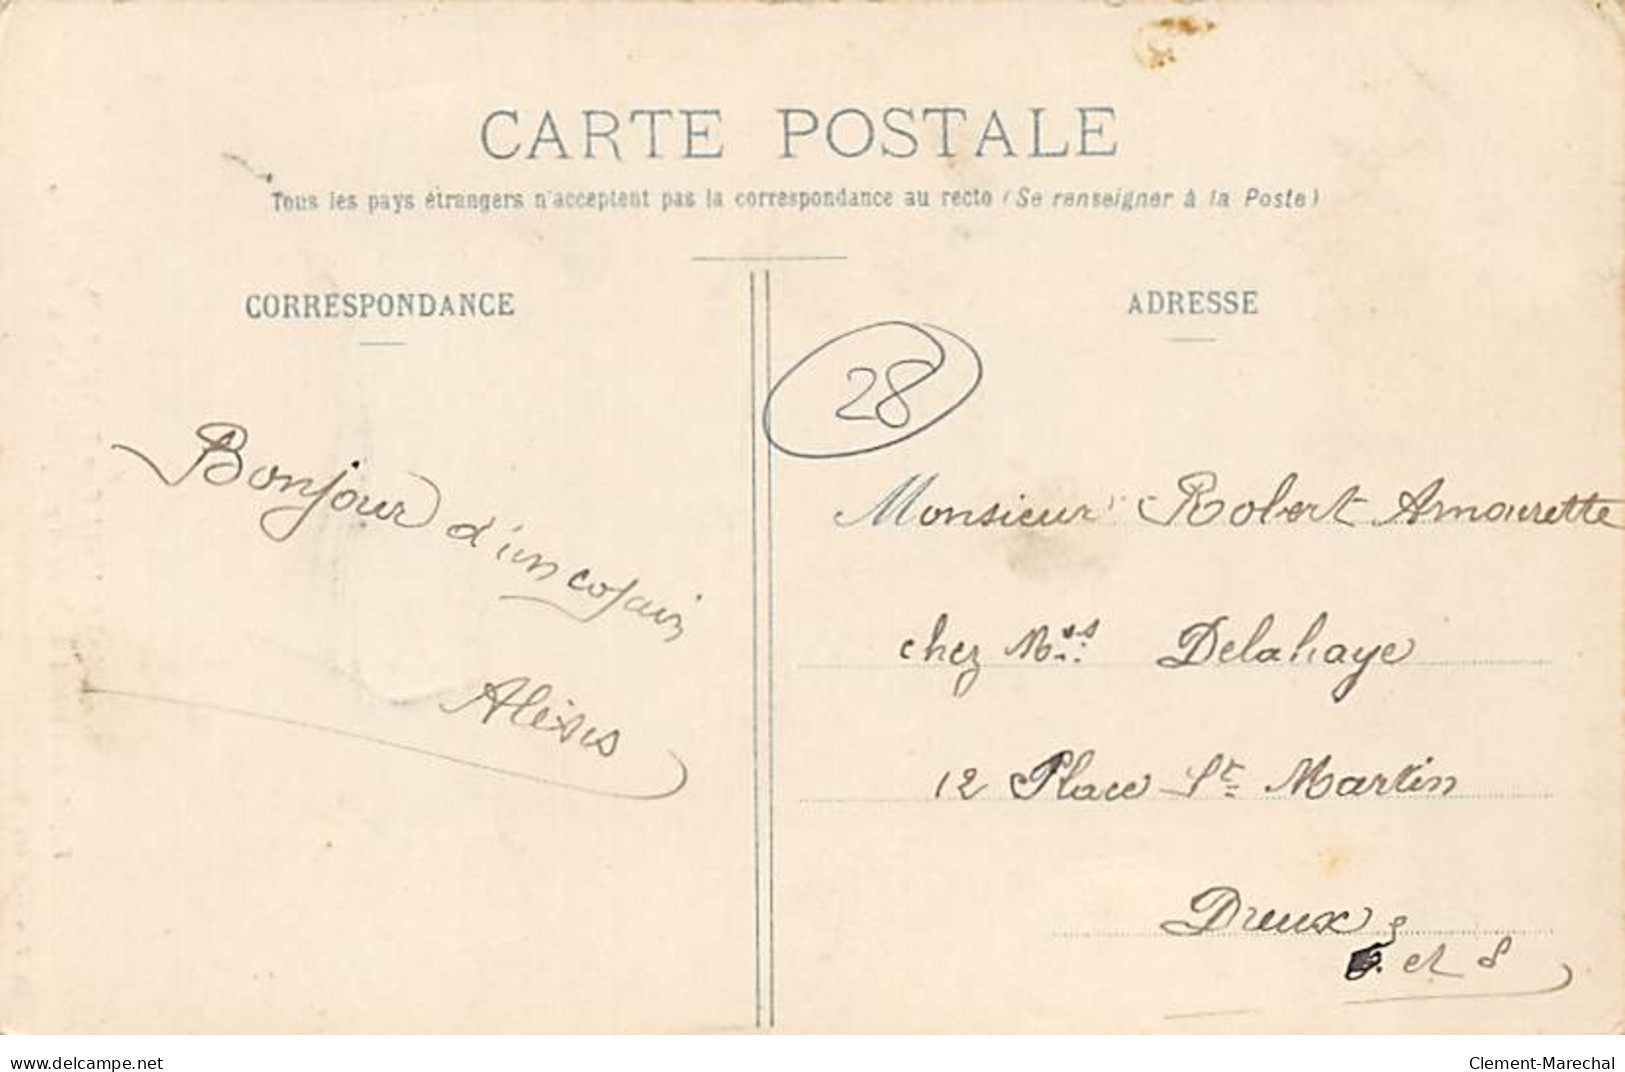 CARTE POSTALE
Tous les pays étrangers n'acceptent pas la correspondance au recto (Se renseigner à la Poste)
CORRESPONDANCE
Bonjour d'un copain
Alexis
ADRESSE
28
Monsieur Robert Amourette
chez Mrs Delahaye
12 Place St Martin
Dreux
et
delcampe.net
Clement-Marechal